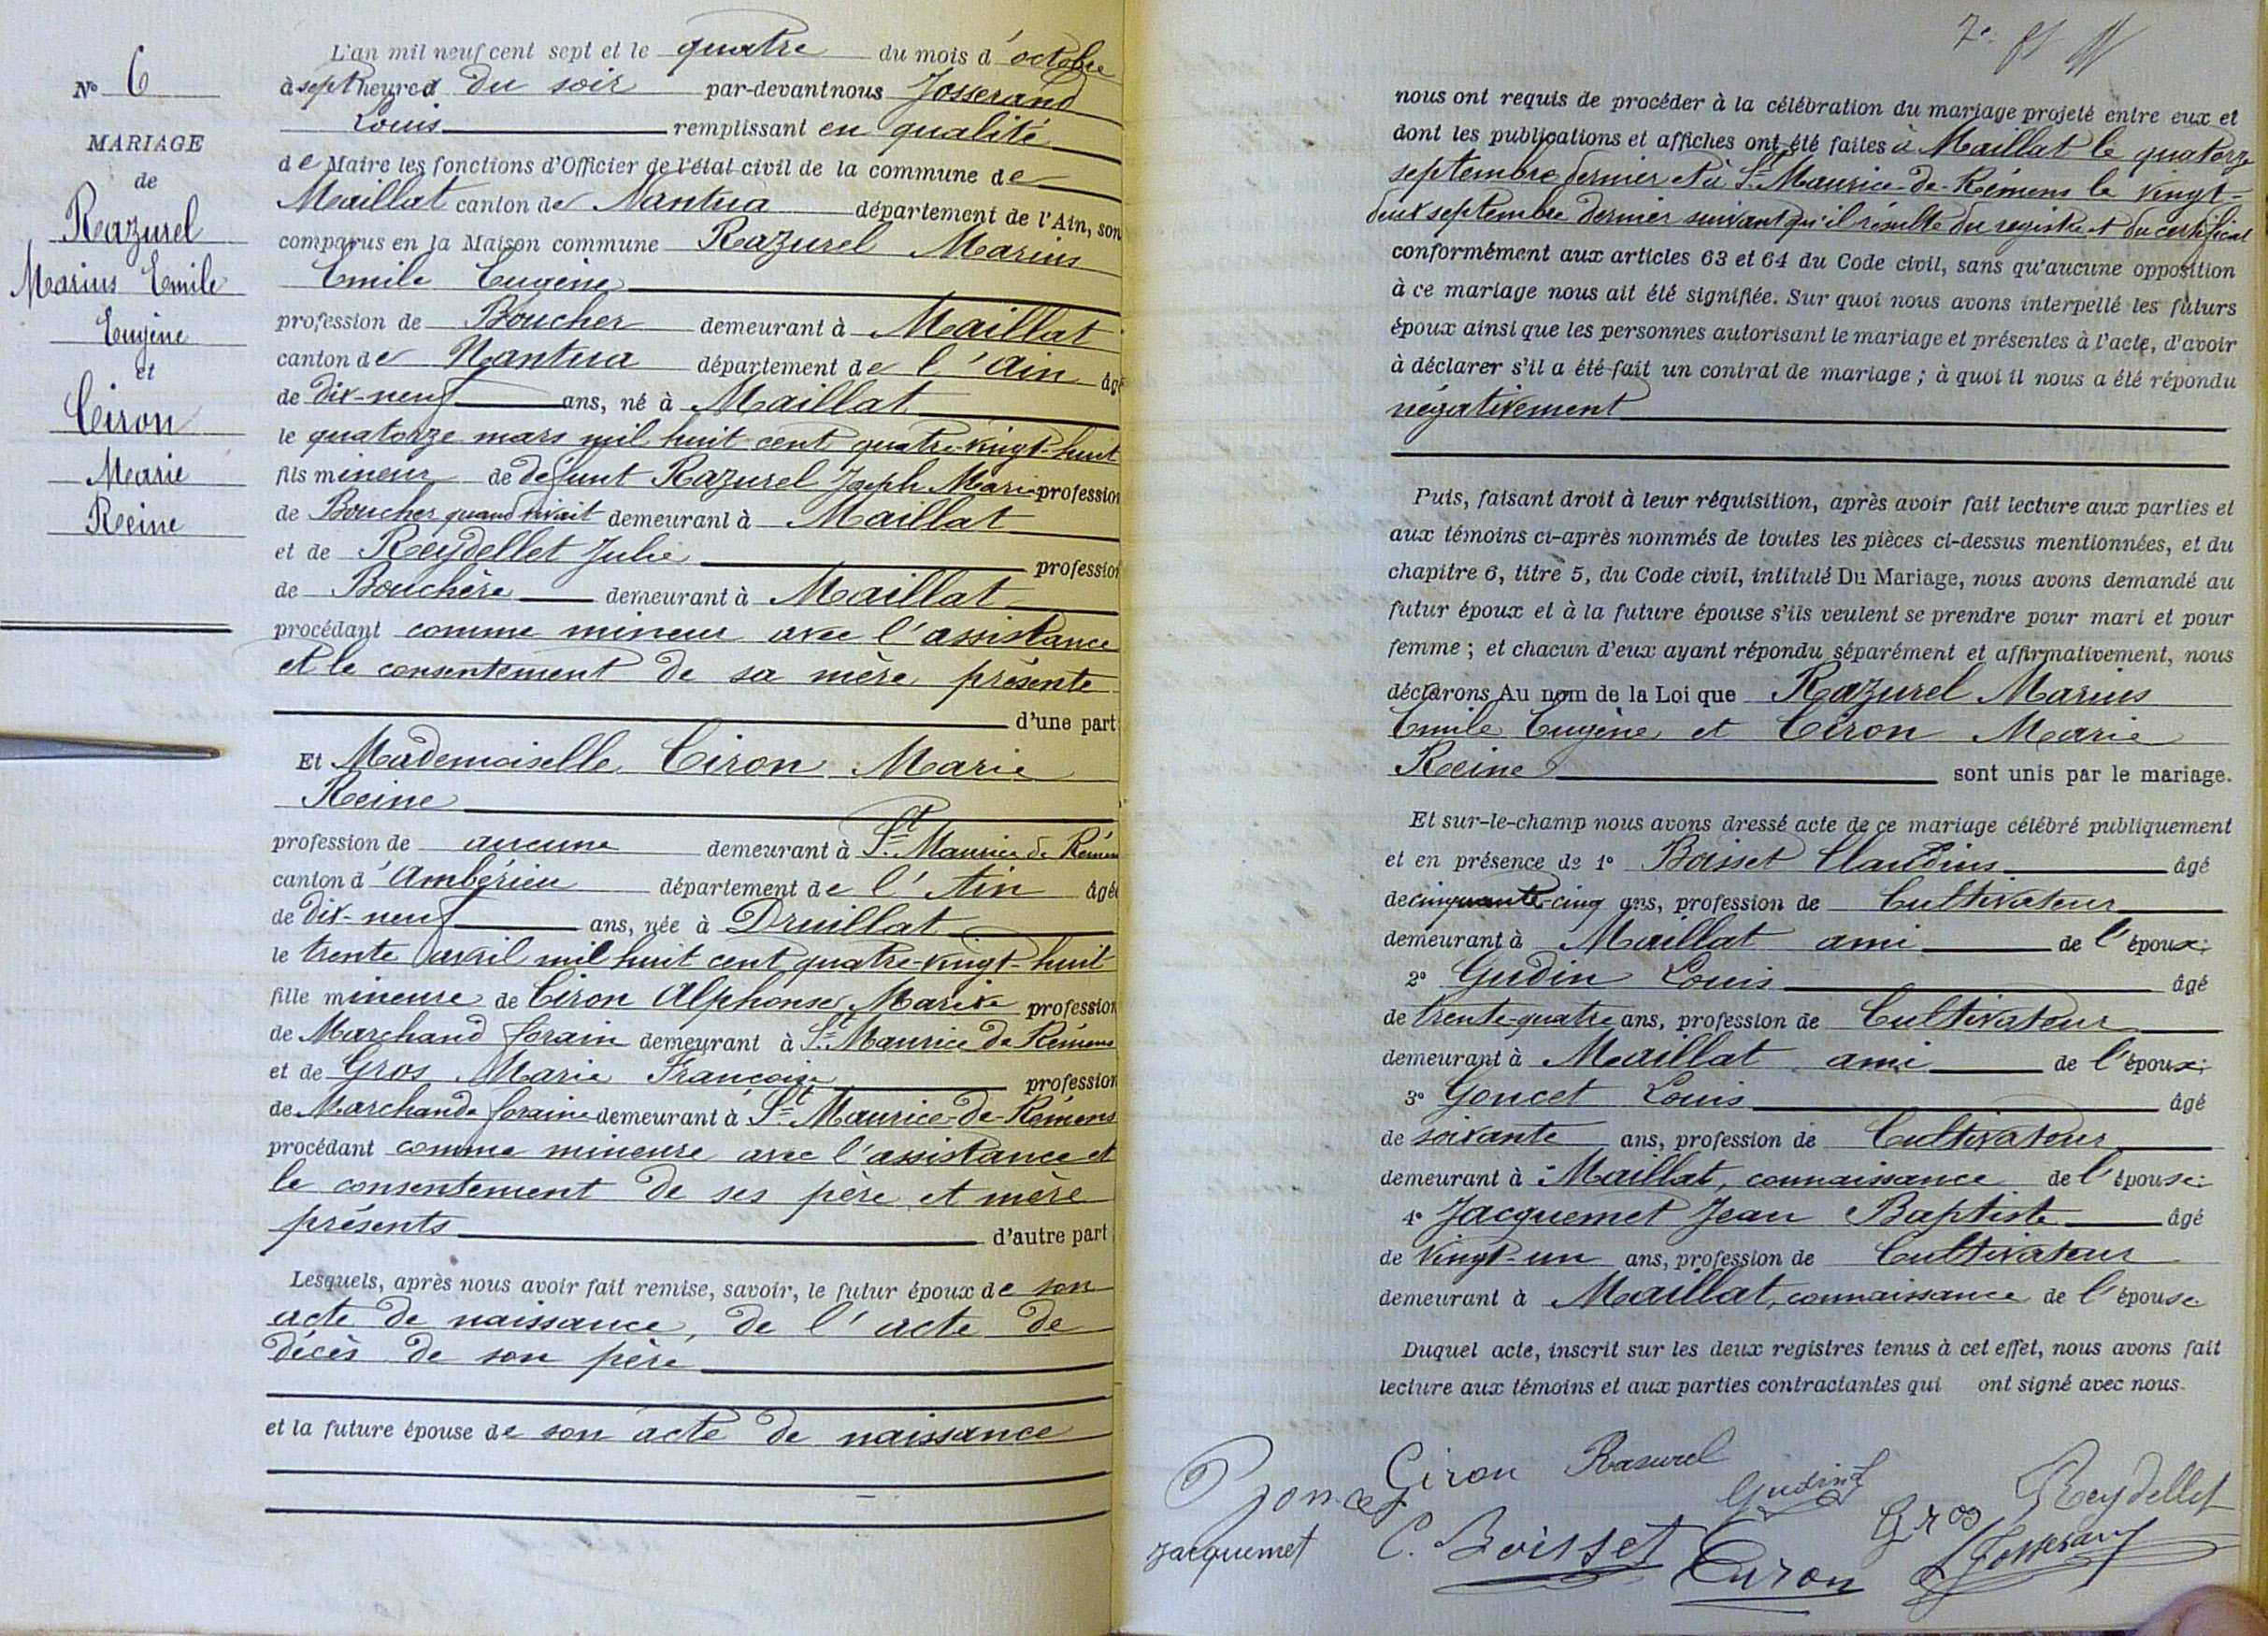 N° 6
MARIAGE
de
Razurel
Marius Emile
Eugène
et
Ciron
Marie
Reine
L'an mil neuf cent sept et le quatre du mois d'octobre
à sept heures du soir par-devant nous Josserand
Louis remplissant en qualité
de Maire les fonctions d'Officier de l'état civil de la commune de
Maillat canton de Nantua département de l'Ain, son
comparus en la Maison commune Razurel Marius
Emile Eugène
profession de Boucher demeurant à Maillat
canton de Nantua département de l'Ain âgé
de dix-neuf ans, né à Maillat
le quatorze mars mil huit cent quatre-vingt-huit
fils mineur de défunt Razurel Joseph Marie profession
de Boucher quand vivait demeurant à Maillat
et de Reydellet Julie profession
de Bouchère demeurant à Maillat
procédant comme mineur avec l'assistance
et le consentement de sa mère présente
d'une part
Et Mademoiselle Ciron Marie
Reine
profession de aucune demeurant à St. Maurice de Rémens
canton d'Ambérieu département de l'Ain âgée
de dix-neuf ans, née à Druillat
le trente avril mil huit cent quatre-vingt-huit
fille mineure de Ciron Alphonse Marie profession
de Marchand forain demeurant à St. Maurice de Rémens
et de Gros Marie Françoise profession
de Marchande foraine demeurant à St. Maurice-de-Rémens
procédant comme mineure avec l'assistance et
le consentement de ses père et mère
présents d'autre part
Lesquels, après nous avoir fait remise, savoir, le futur époux de son
acte de naissance, de l'acte de
décès de son père
et la future épouse de son acte de naissance
nous ont requis de procéder à la célébration du mariage projeté entre eux et
dont les publications et affiches ont été faites à Maillat le quatorze
septembre dernier et à St. Maurice-de-Rémens le vingt-
deux septembre dernier suivant qu'il résulte du registre et du certificat
conformément aux articles 63 et 64 du Code civil, sans qu'aucune opposition
à ce mariage nous ait été signifiée. Sur quoi nous avons interpellé les futurs
époux ainsi que les personnes autorisant le mariage et présentes à l'acte, d'avoir
à déclarer s'il a été fait un contrat de mariage ; à quoi il nous a été répondu
négativement
Puis, faisant droit à leur réquisition, après avoir fait lecture aux parties et
aux témoins ci-après nommés de toutes les pièces ci-dessus mentionnées, et du
chapitre 6, titre 5, du Code civil, intitulé Du Mariage, nous avons demandé au
futur époux et à la future épouse s'ils veulent se prendre pour mari et pour
femme ; et chacun d'eux ayant répondu séparément et affirmativement, nous
déclarons Au nom de la Loi que Razurel Marius
Emile Eugène et Ciron Marie
Reine sont unis par le mariage.
Et sur-le-champ nous avons dressé acte de ce mariage célébré publiquement
et en présence de 1° Boisset Claudius âgé
de cinquante-cinq ans, profession de Cultivateur
demeurant à Maillat ami de l'époux;
2° Gudin Louis âgé
de trente-quatre ans, profession de Cultivateur
demeurant à Maillat ami de l'époux;
3° Goncet Louis âgé
de soixante ans, profession de Cultivateur
demeurant à Maillat, connaissance de l'épouse;
4° Jacquemet Jean Baptiste âgé
de vingt-un ans, profession de Cultivateur
demeurant à Maillat, connaissance de l'épouse
Duquel acte, inscrit sur les deux registres tenus à cet effet, nous avons fait
lecture aux témoins et aux parties contractantes qui ont signé avec nous.
Ciron Rasurel Gudin Reydellet
Goncet Gros
Jacquemet C. Boisset Ciron Josserand